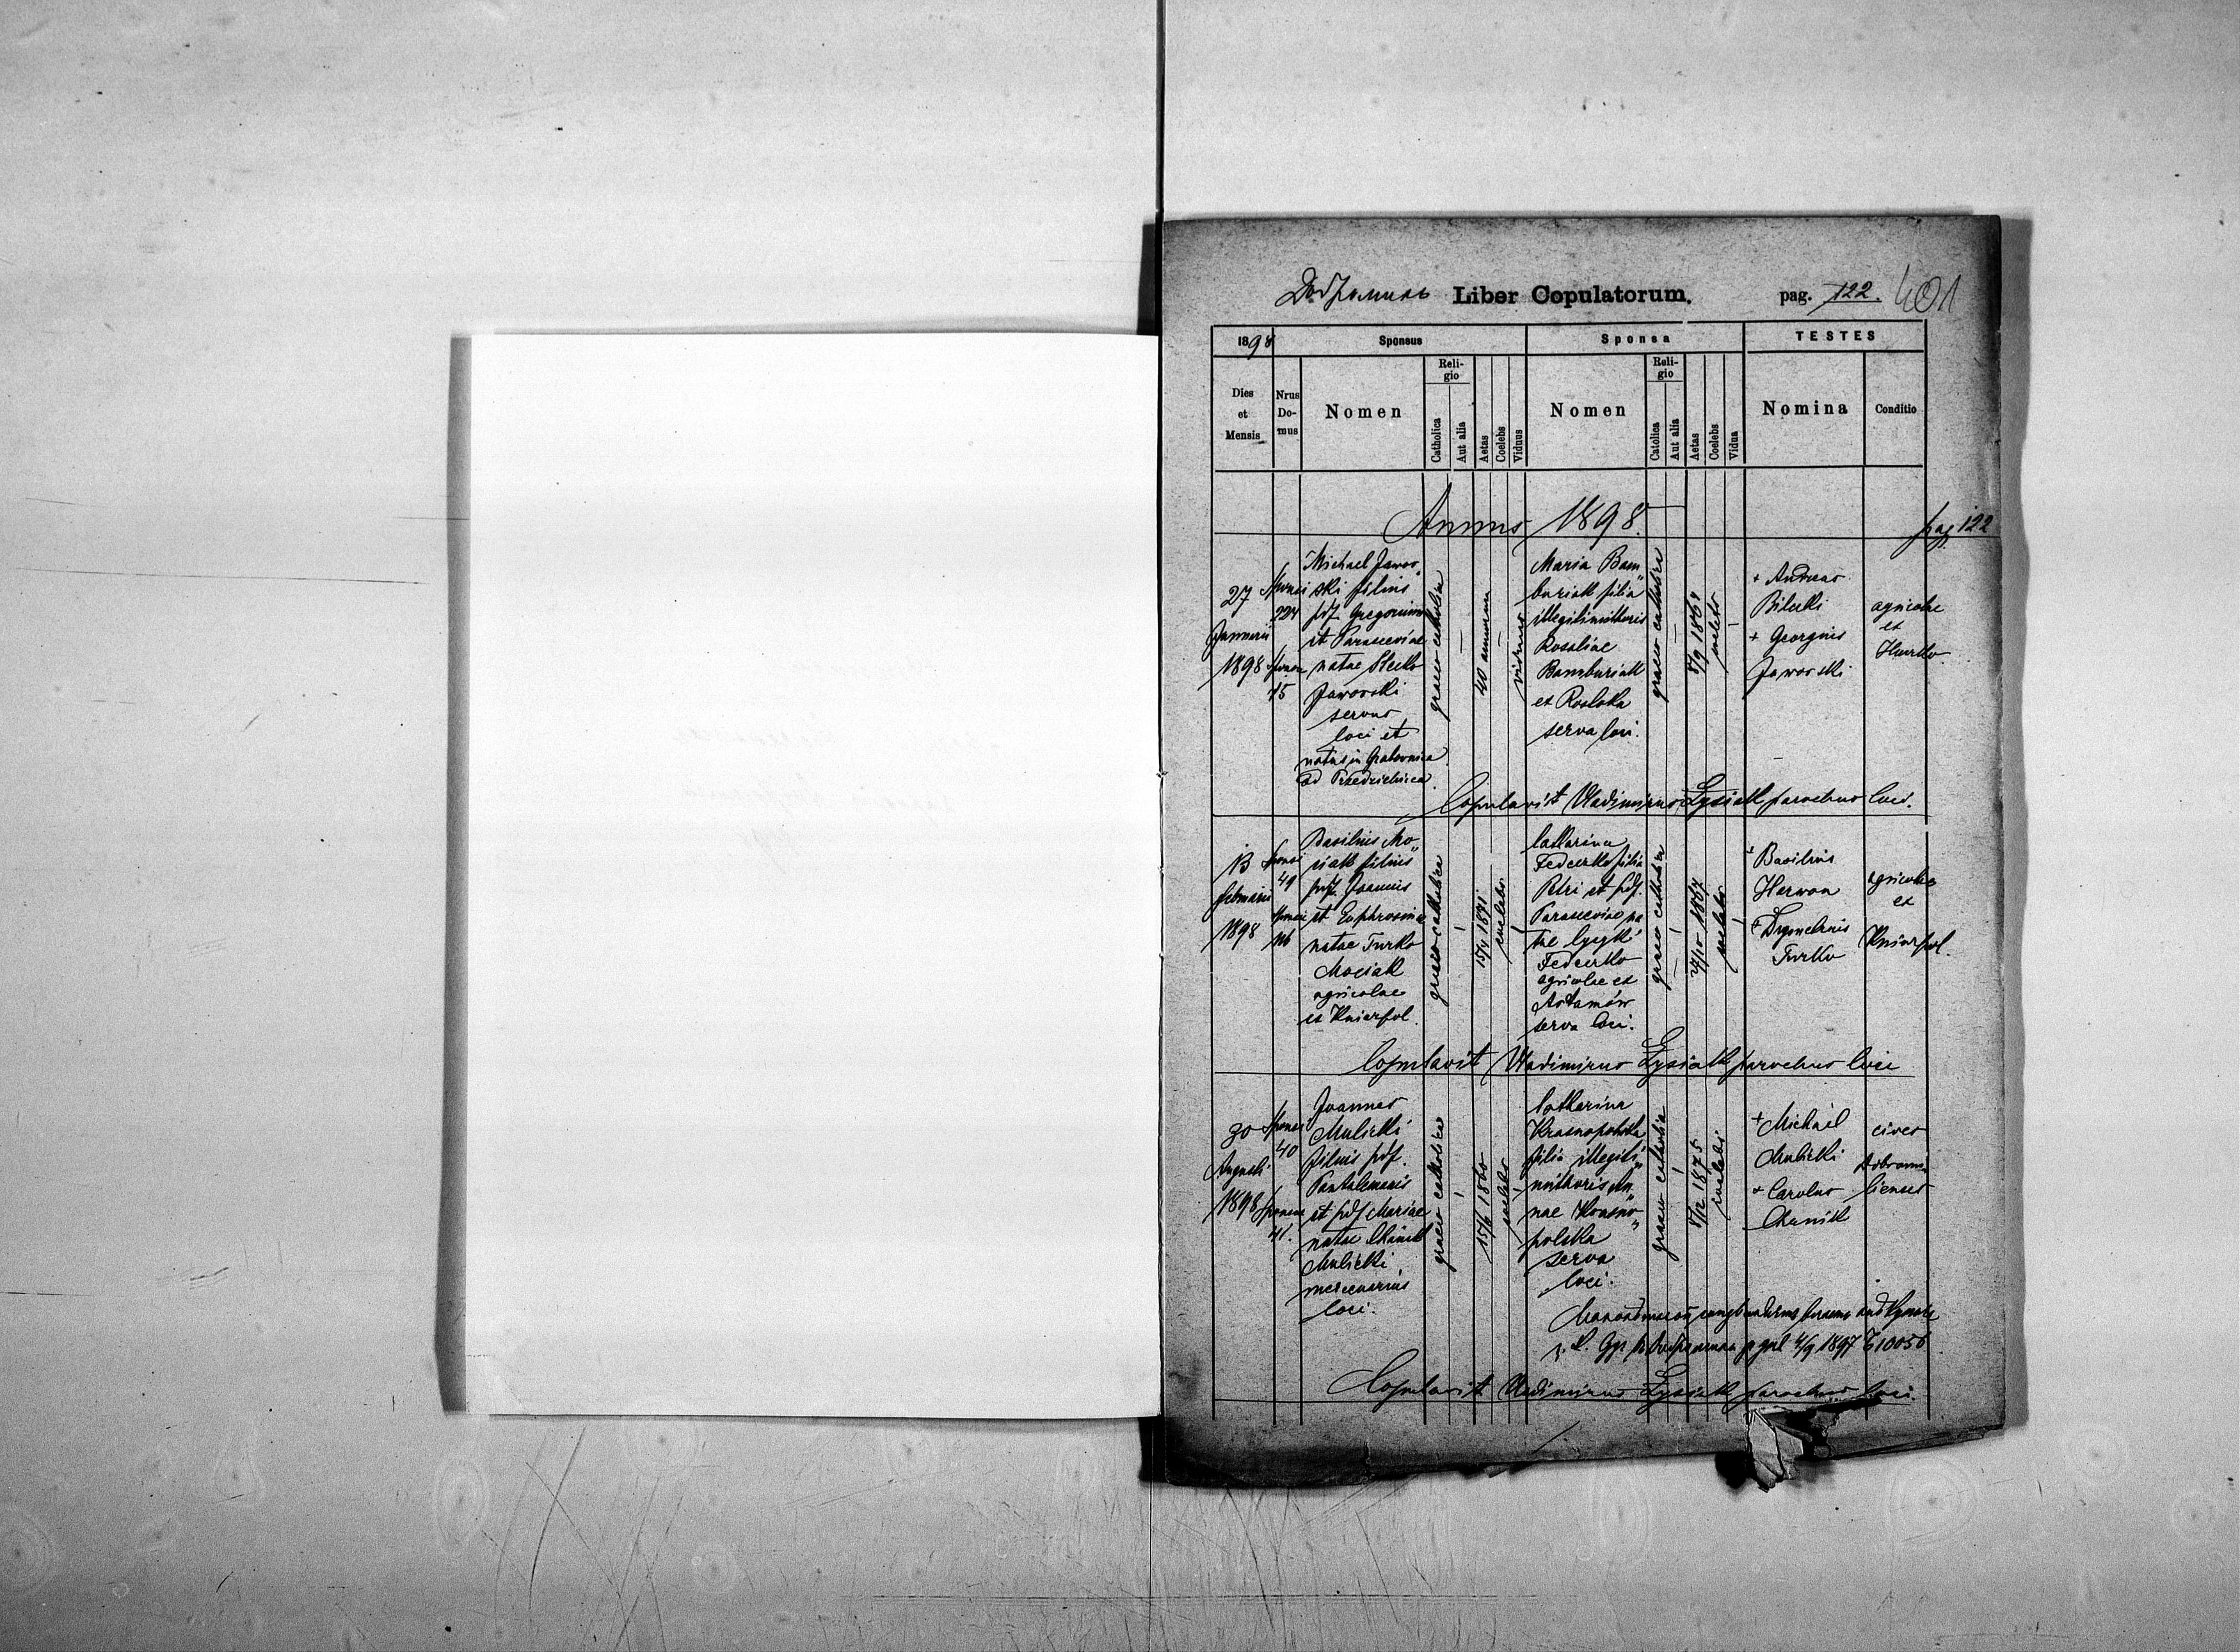 Добромиль Liber Copulatorum. pag. 122. 401
1898 Sponsus Sponsa TESTES
Dies et Mensis
Nrus Do-mus
Nomen
Reli-gio
Catholica
Aut alia
Aetas
Coelebs
Viduus
Nomen
Reli-gio
Catolica
Aut alia
Aetas
Coelebs
Vidua
Nomina
Conditio
Annus 1898.
pag 122
27
Januarii
1898
Sponsi
224
Sponsae
15
Michael Jawor„
ski filius
pdf. Gregorium
et Parasceviae
natae Stecko
Jaworski
servus
loci et
natus in Grabovnica
ad Przedzielnica
graeco catholica
40 annorum
viduus
Maria Bam„
buriak filia
illegitimithoris
Rosaliae
Bamburiak
ex
serva loci.
graeco catholica
8/9 1868
coelebs
+ Andreas
Bilecki
+ Georgius
Jaworski
agricolae
et
Copulavit Vladimirus Lysiak parochus loci.
13
februarii
1898
Sponsi
49
Sponsae
116
Basilius Mo„
ciak filius
pdf. Joannis
et Euphrosinae
natae Turko
Mociak
agricolae
ex Kniazpol.
graeco catholica
15/4 1871
coelebs
Catharina
Fedczko filia
Petri et pdf.
Parasceviae na
tae
Fedczko
agricolae ex
Artamów
serva loci.
graeco catholica
1867
coelebs
+ Basilius
Herwan
+
Turko
agricolae
ex
Kniazpol.
Copulavit Vladimirus Lysiak parochus loci
30
Augusti
1898
Sponsi
40
Sponsae
41.
Joannes
Mulicki
filius pdf.
Pantalemonis
et pdf Mariae
natae Chanik
Mulicki
mercenarius
loci.
graeco catholica
coelebs
Catharina
Krasnopolska
filia illegiti„
mithoris An„
nae Krasno„
polska
serva
loci.
graeco catholica
8/12 1875
coelebs
+ Michael
Mulicki
+ Carolus
Chanik
cives
Dobromi„
lienses
4/9 1897 10056
Copulavit Vladimirus Lysiak parochus loci.